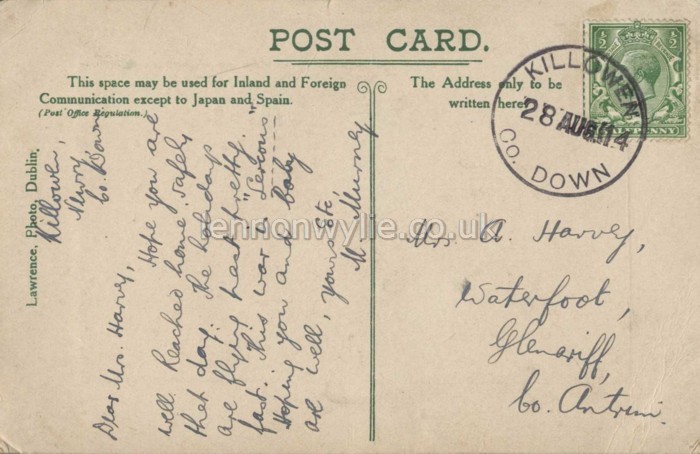 POST CARD.
This space may be used for Inland and Foreign
Communication except to Japan and Spain.
(Post Office Regulation.)
The Address only to be
written here
KILLOWEN
28 AU 14
CO. DOWN
½ ½
PENNY
Lawrence, Photo, Dublin.
Killowen,
Newry
Co. Down
Dear Mrs. Harvey,
Hope you are
well. Reached home safely
that day. The holidays
are flying past pretty
fast. This war is "serious".
Hoping you and baby
are well, yours etc,
M. Murney
Mrs. A. Harvey,
Waterfoot,
Glenariff,
Co. Antrim.
lennonwylie.co.uk